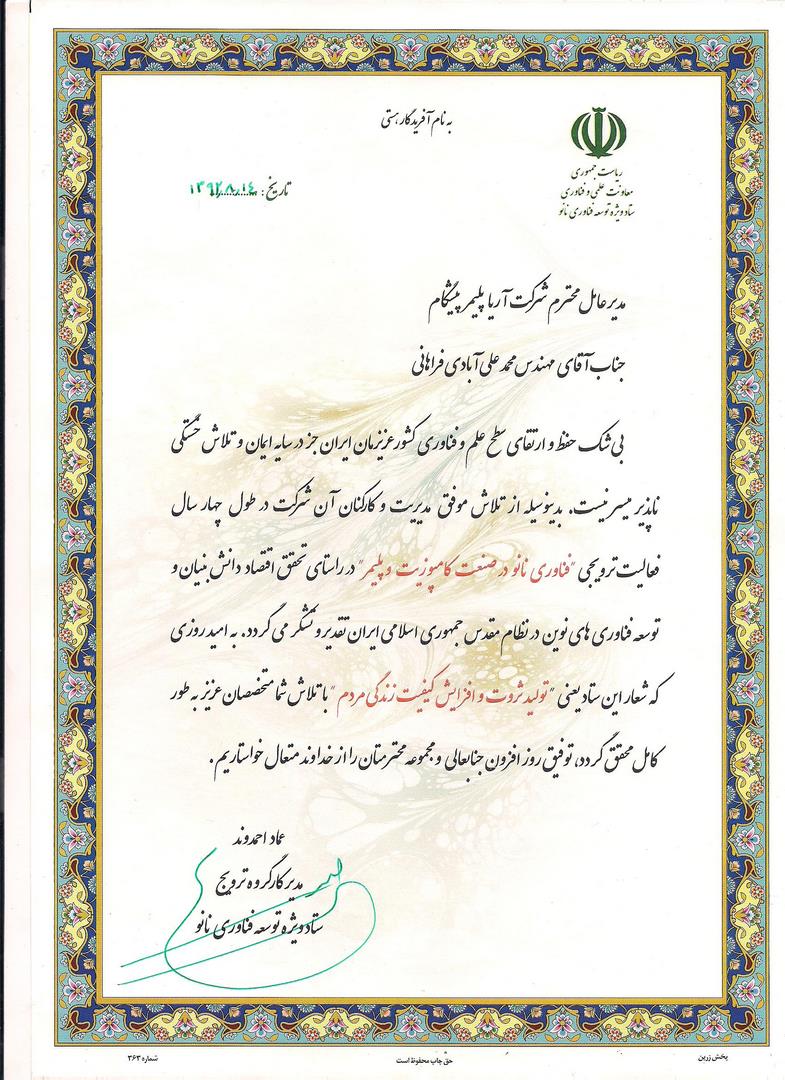 به نام آفریدگار هستی
ریاست جمهوری
معاونت علمی و فناوری
ستاد ویژه توسعه فناوری نانو
تاریخ : ۱۳۹۲/۸/۱۴
مدیر عامل محترم شرکت آریا پلیمر پیشگام
جناب آقای مهندس محمد علی آبادی فراهانی
بی شک حفظ و ارتقای سطح علم و فناوری کشور عزیزمان ایران جز در سایه ایمان و تلاش خستگی
ناپذیر میسر نیست. بدینوسیله از تلاش موفق مدیریت و کارکنان آن شرکت در طول چهار سال
فعالیت ترویجی "فناوری نانو در صنعت کامپوزیت و پلیمر" در راستای تحقق اقتصاد دانش بنیان و
توسعه فناوری های نوین در نظام مقدس جمهوری اسلامی ایران تقدیر و تشکر می گردد. به امید روزی
که شعار این ستاد یعنی "تولید ثروت و افزایش کیفیت زندگی مردم" با تلاش شما متخصصان عزیز به طور
کامل محقق گردد، توفیق روز افزون جنابعالی و مجموعه محترمتان را از خداوند متعال خواستاریم.
عماد احمدوند
مدیر کارگروه ترویج
ستاد ویژه توسعه فناوری نانو
پخش زرین
حق چاپ محفوظ است
شماره ۳۶۳